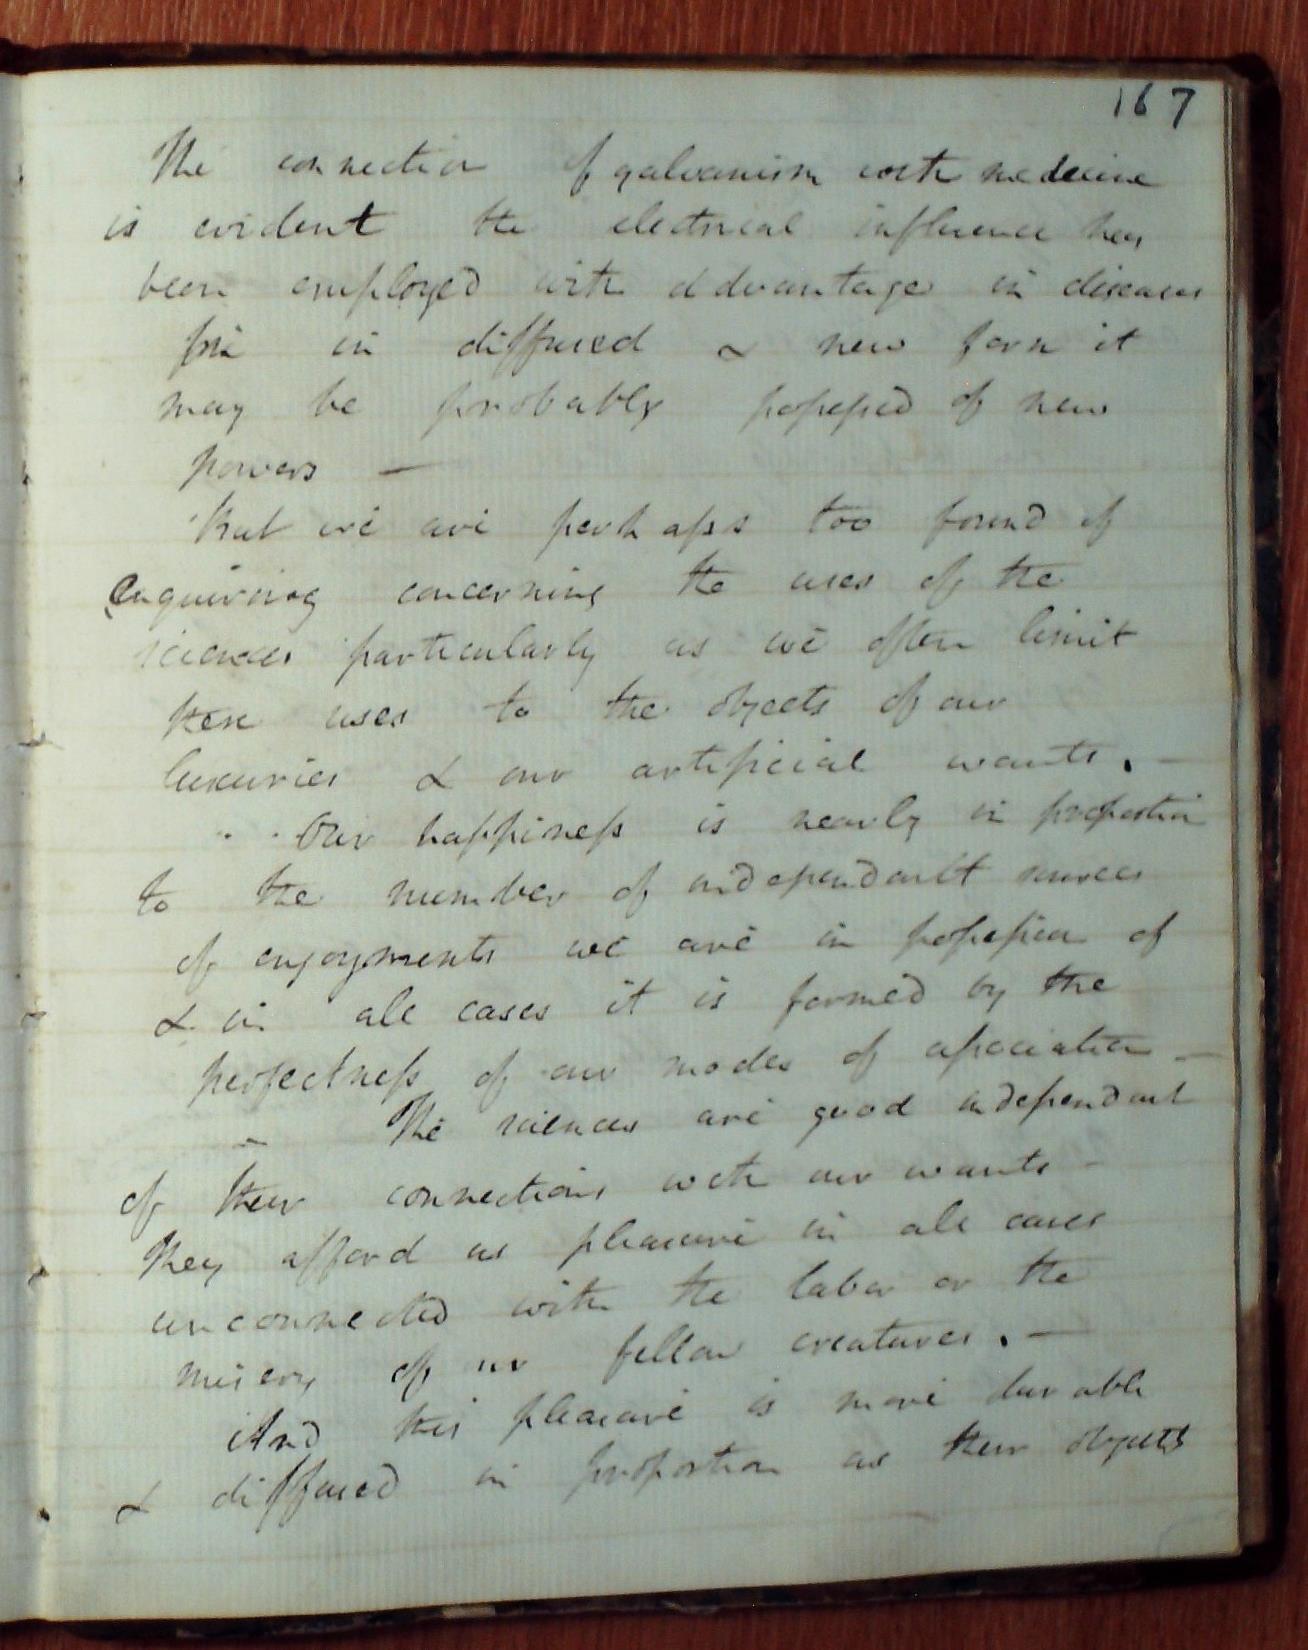 167
The connection of galvanism with medecine
is evident the electrical influence has
been employed with advantage in diseases
in diffused & new form it
may be probably possessed of new
powers —
But we are perhapss too found of
enquiring concerning the uses of the
sciences particularly as we often limit
these uses to the objects of our
luxuries & our artificial wants. —
Our happiness is nearly in proportion
to the number of independant sources
of enjoyments we are in possession of
& in all cases it is formed by the
perfectness of our modes of association —
— The sciences are good independant
of their connections with our wants —
They afford us pleasure in all cases
unconnected with the labor or the
misery of our fellow creatures. —
And this pleasure is more durable
& diffused in proportion as their objects